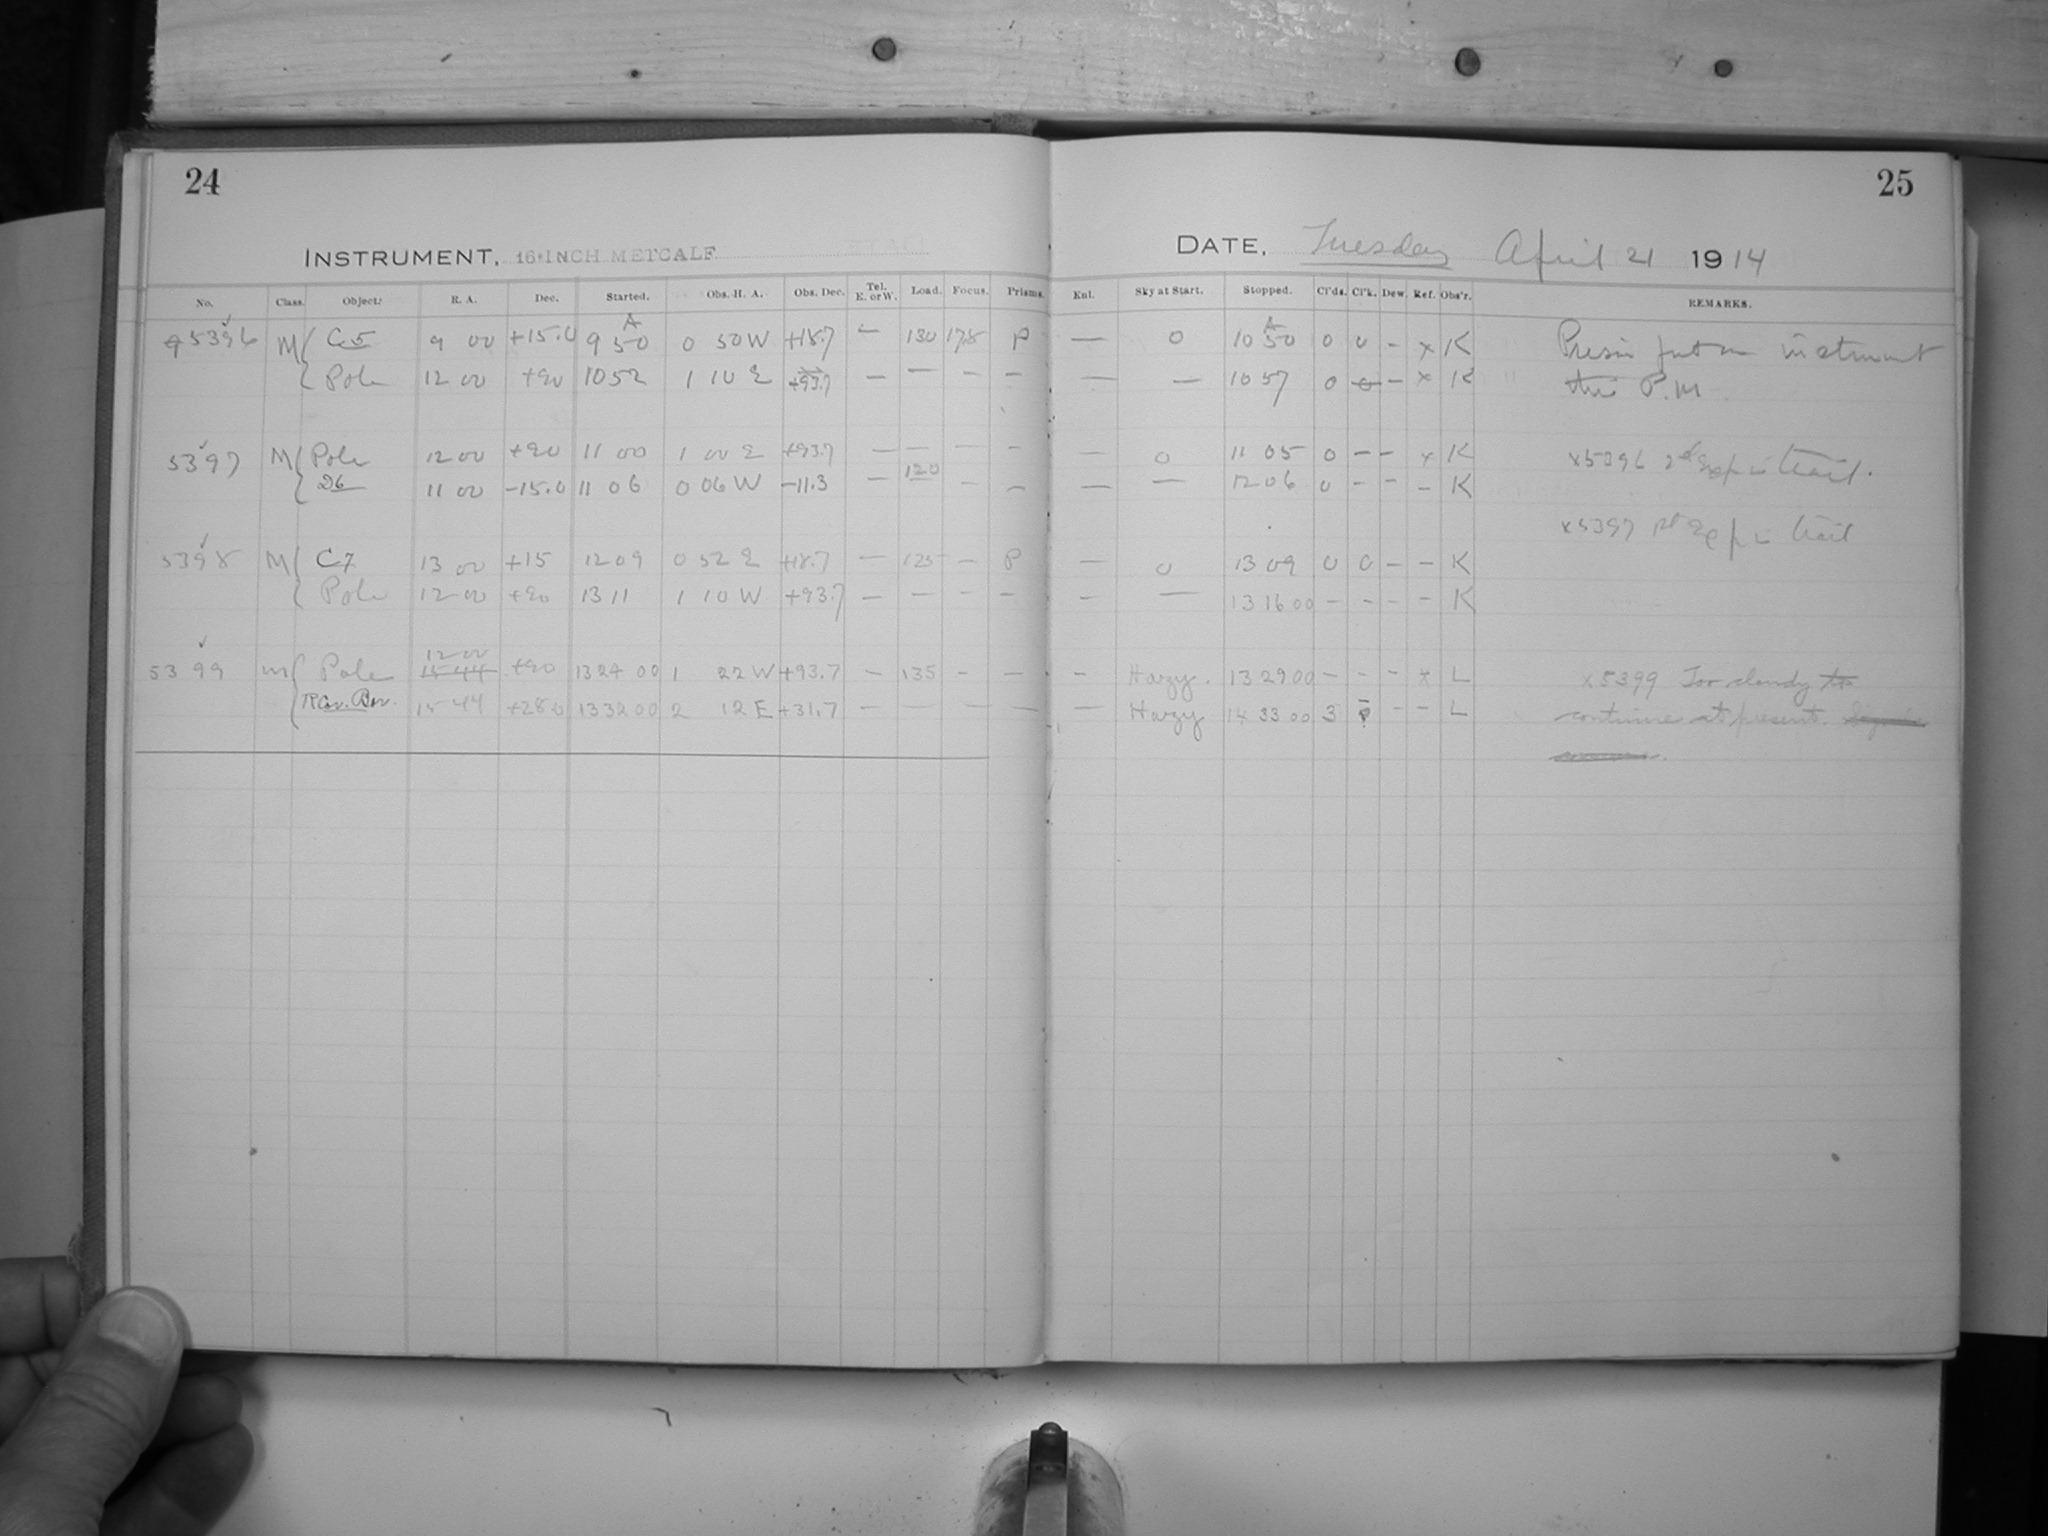 24
25
INSTRUMENT, 16-INCH METCALF
DATE, Tuesday April 21 1914
No. Class. Object. R. A. Dec. Started. Obs. H. A. Obs. Dec. Tel. E. or W. Load. Focus. Prisms. Enl. Sky at Start. Stopped. Cl'ds. Cl'k. Dew. Ref. Obs'r. REMARKS.
5396 M C5 9 00 +15.0 9 50 0 50 W +18.7 — 130 17.8 P — 0 10 50 0 0 - x K
Pole 12 00 +90 10 52 1 10 E +93.7 — — — — — — 10 57 0 - x K
Prism put on instrument
this P.M.
5397 M Pole 12 00 +90 11 00 1 00 E +93.7 — — — — — 0 11 05 0 — — x K x5396 2d Exp is trail.
D6 11 00 -15.0 11 06 0 06 W -11.3 — 120 — — — — 12 06 0 - - - K
x5397 1st Exp is trail
5398 M C7 13 00 +15 12 09 0 52 E +18.7 — 125 — P — 0 13 09 0 0 - - K
Pole 12 00 +90 13 11 1 10 W +93.7 — — — — — — 13 16 00 - - - - K
5399 M Pole 12 00 15 44 +90 13 24 00 1 22 W +93.7 — 135 — — — Hazy. 13 29 00 - - - x L x5399 Too cloudy to
R Cor. Bor. 15 44 +28.0 13 32 00 2 12 E +31.7 — — — — — Hazy 14 33 00 3 - - L continue at present.